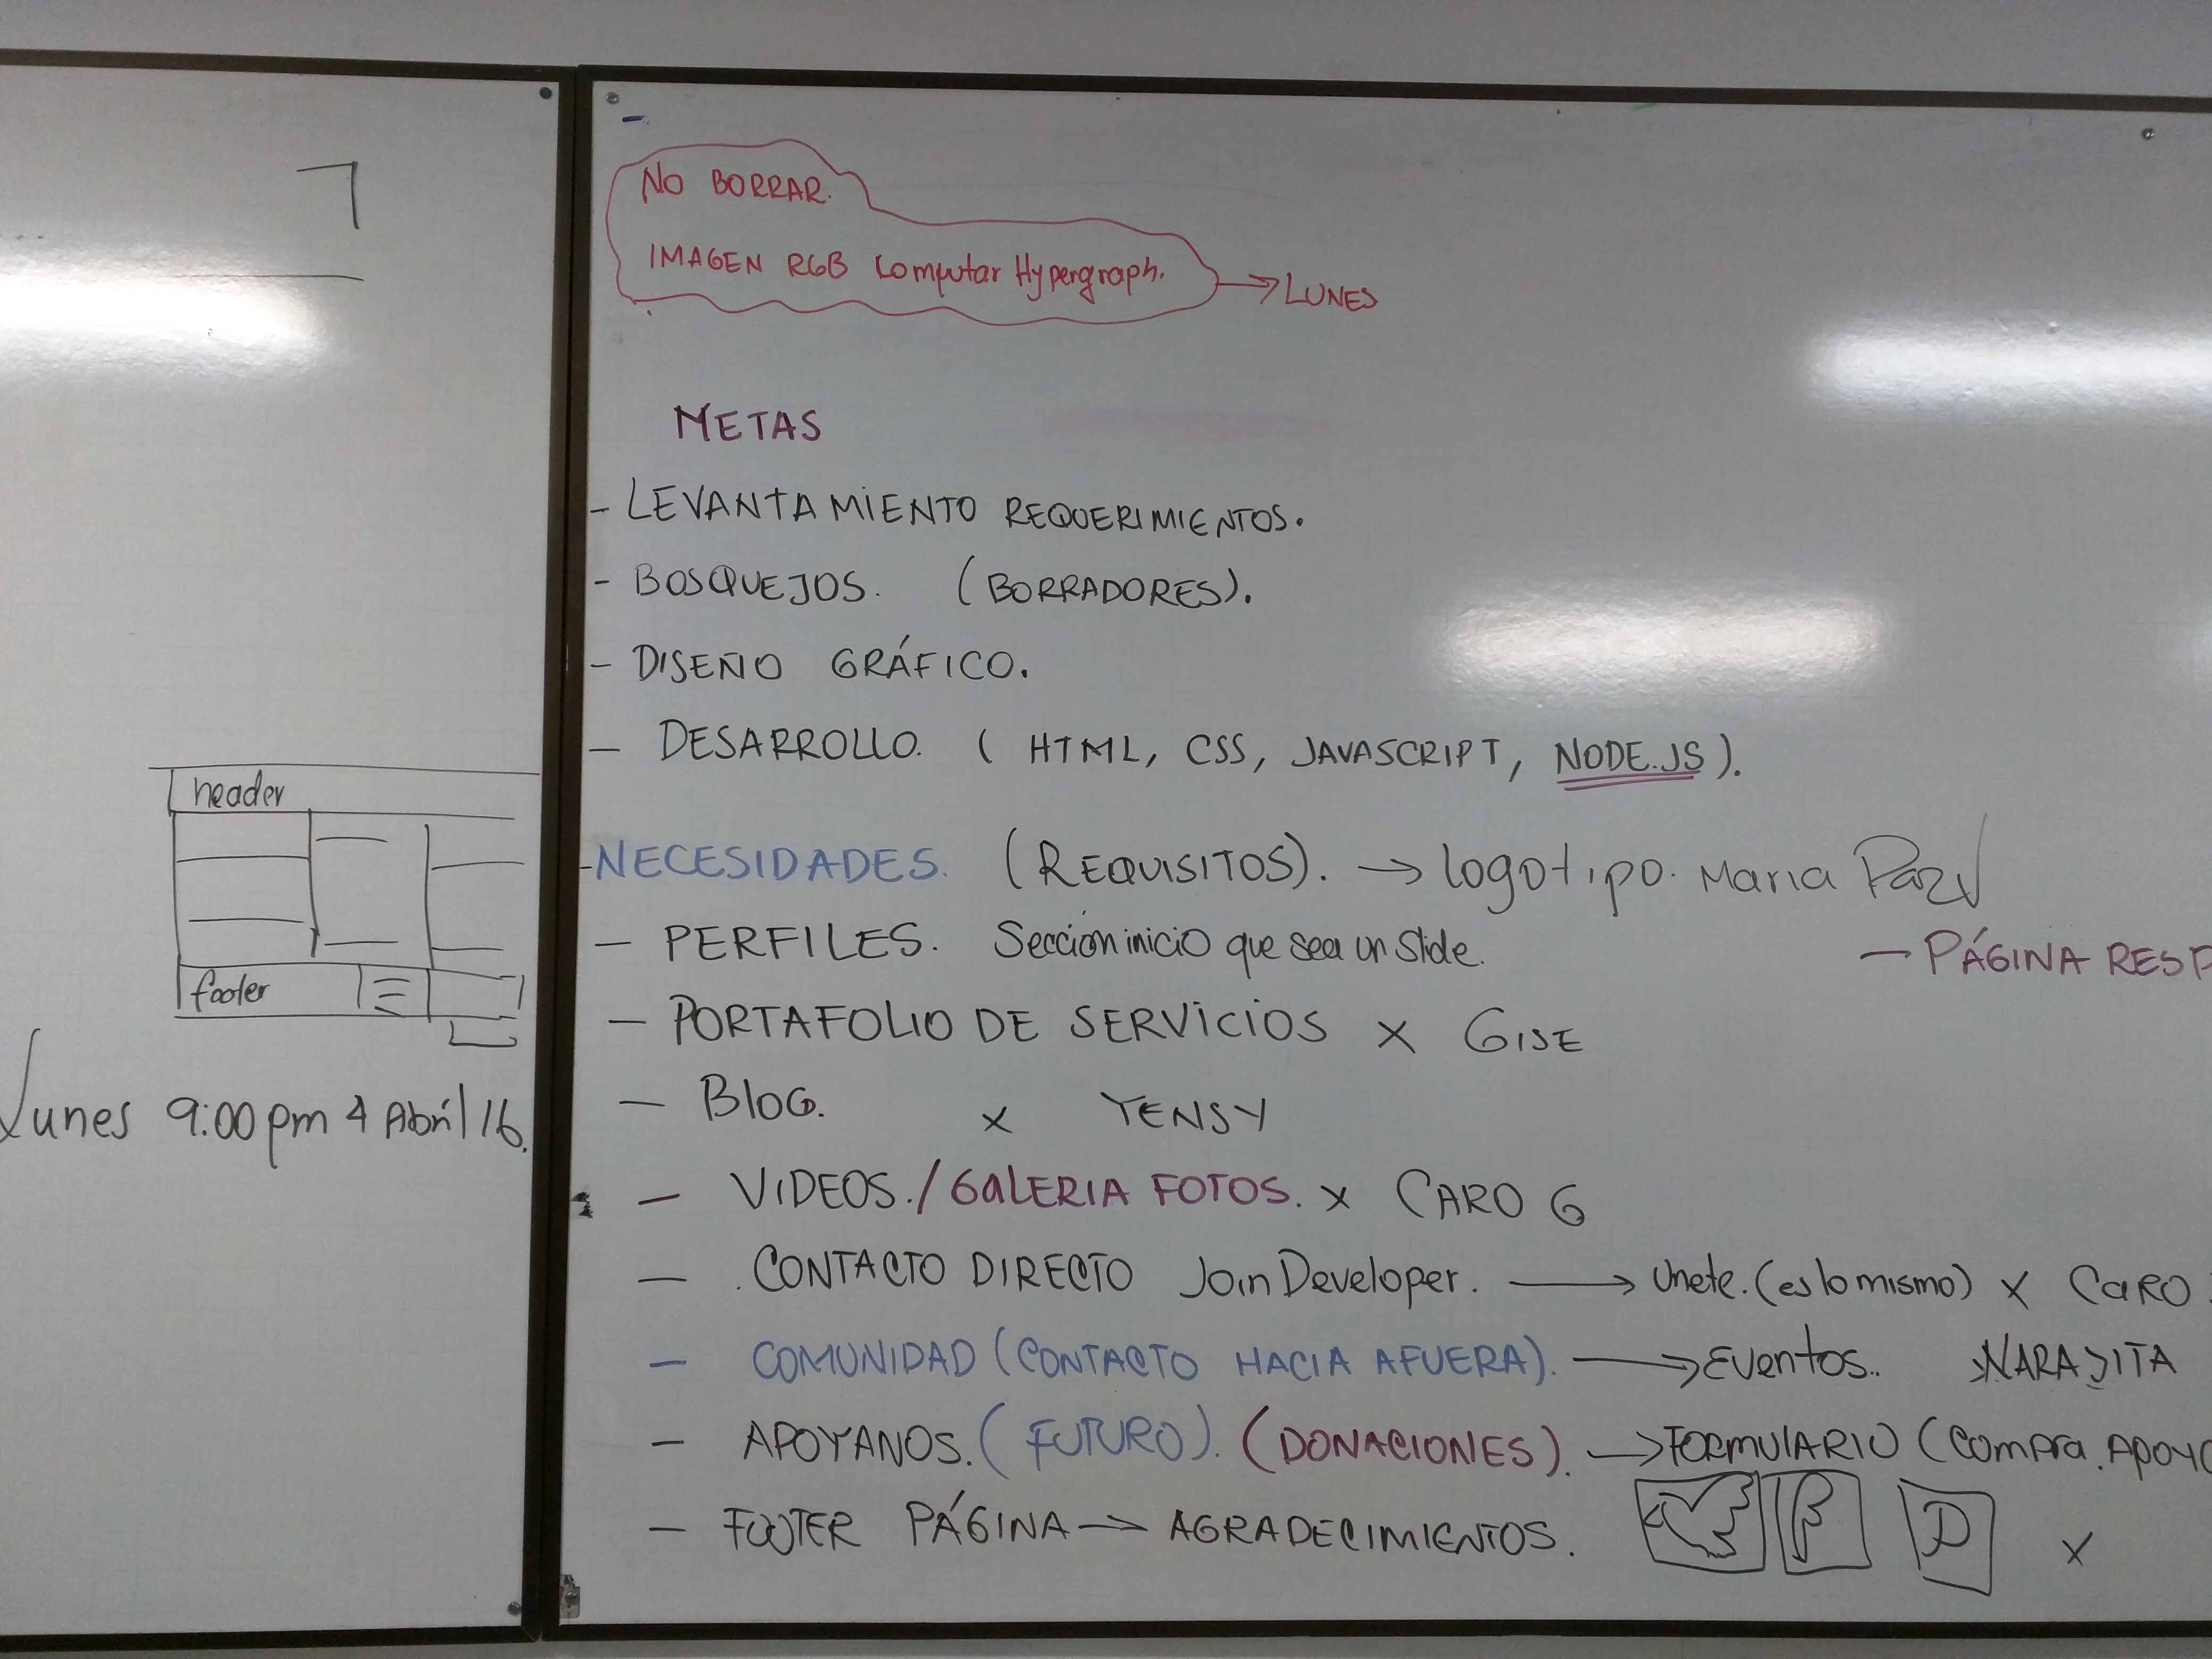 header
footer
Lunes 9:00 pm 4 Abril 16.
NO BORRAR.
IMAGEN RGB Computar Hypergraph. → LUNES
METAS
- LEVANTAMIENTO REQUERIMIENTOS.
- BOSQUEJOS. (BORRADORES).
- DISEÑO GRÁFICO.
- DESARROLLO. ( HTML, CSS, JAVASCRIPT, NODE.JS ).
- NECESIDADES. (REQUISITOS). → logotipo. Maria Paz
- PERFILES. Sección inicio que sea un Slide.
- PÁGINA RESP
- PORTAFOLIO DE SERVICIOS x GISE
- BLOG. x YENSY
- VIDEOS. / GALERIA FOTOS. x CARO G
- CONTACTO DIRECTO Join Developer. → Unete. (es lo mismo) x CARO
- COMUNIDAD (CONTACTO HACIA AFUERA). → Eventos..
- APOYANOS. (FUTURO). (DONACIONES). → FORMULARIO (Compra. APOYO
- FOOTER PÁGINA → AGRADECIMIENTOS. x